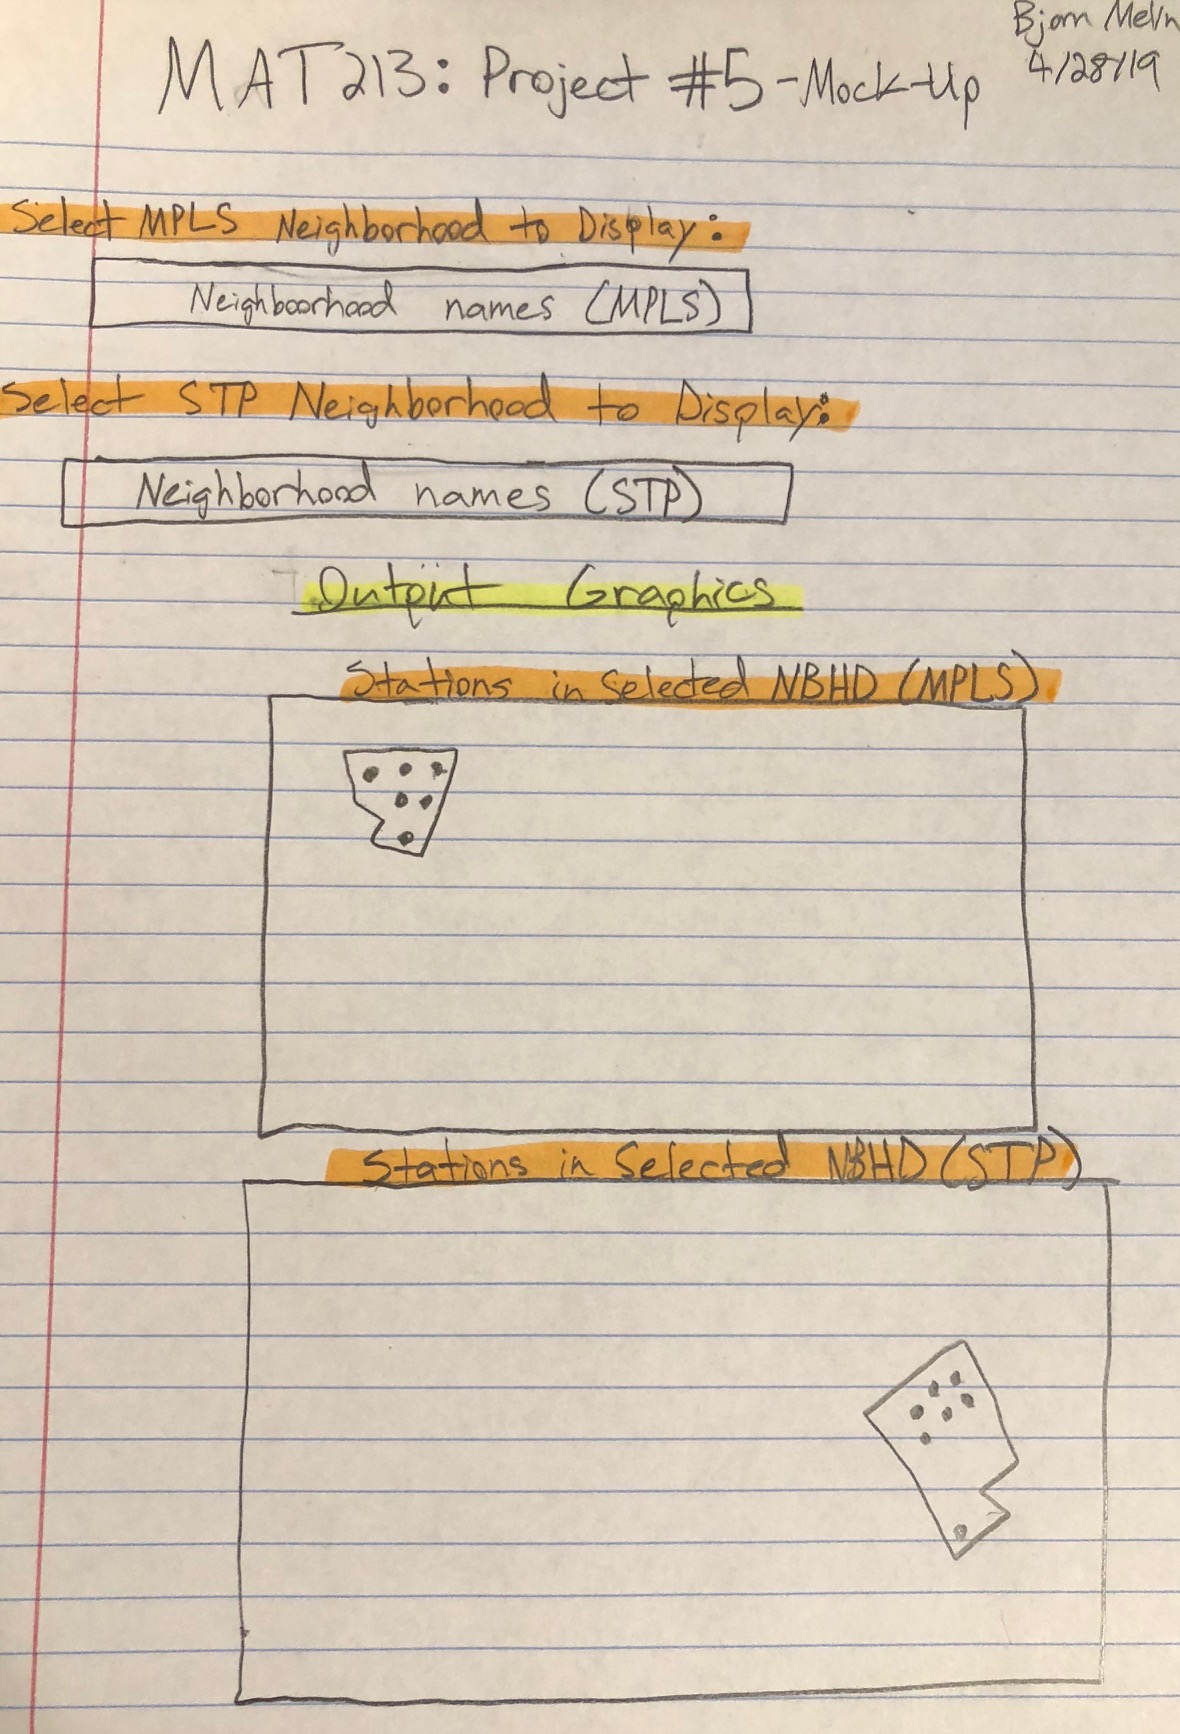 Bjorn Meln
4/28/19
MAT213: Project #5-Mock-Up
Select MPLS Neighborhood to Display:
Neighboorhood names (MPLS)
Select STP Neighborhood to Display:
Neighborhood names (STP)
Output Graphics
Stations in Selected NBHD (MPLS)
Stations in Selected NBHD (STP)